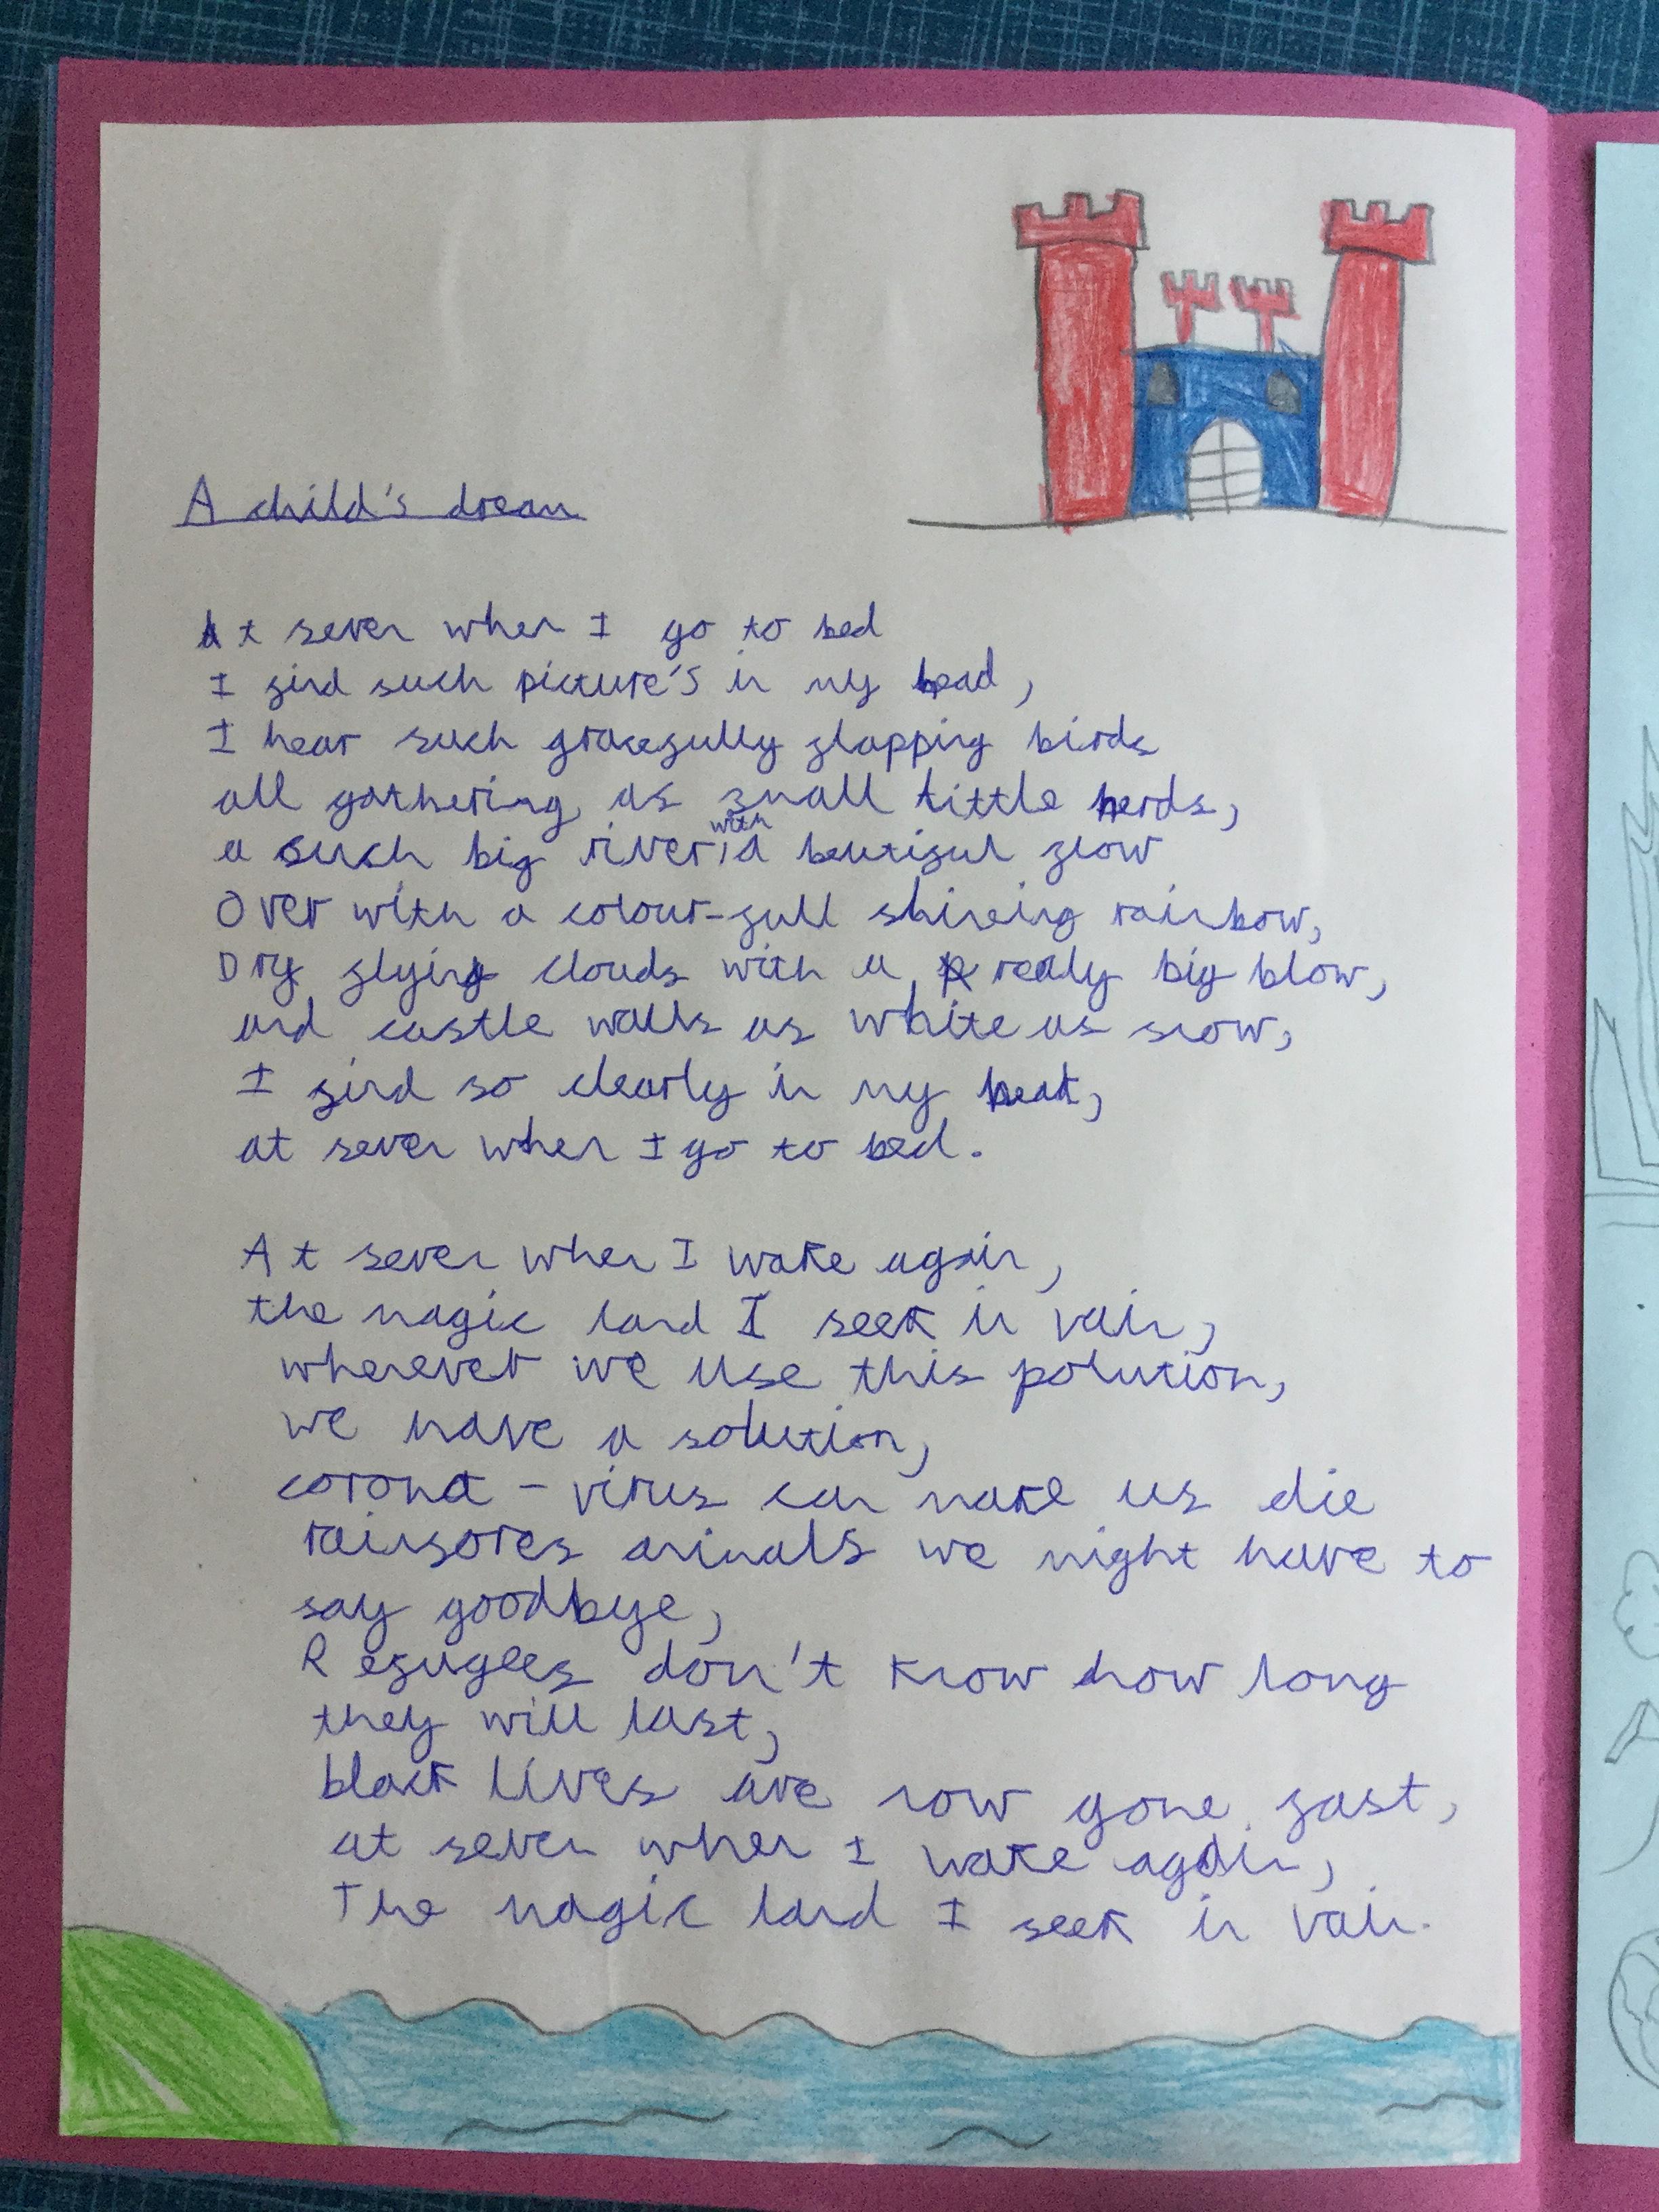 A child's dream
At seven when I go to bed
I find such picture's in my head,
I hear such gracefully flapping birds
all gathering as small little herds,
a such big river, with a beutiful flow
Over with a colour-full shining rainbow,
Dry flying clouds with a realy big blow,
and castle walls as white as snow,
I find so clearly in my head,
at seven when I go to bed.
At seven when I wake again,
the magic land I seek in vain,
wherever we use this polution,
we have a solution,
corona-virus can make us die
rainfores animals we might have to
say goodbye,
Refugees don't know how long
they will last,
black lives are now gone fast,
at seven when I wake again,
The magic land I seek in vain.